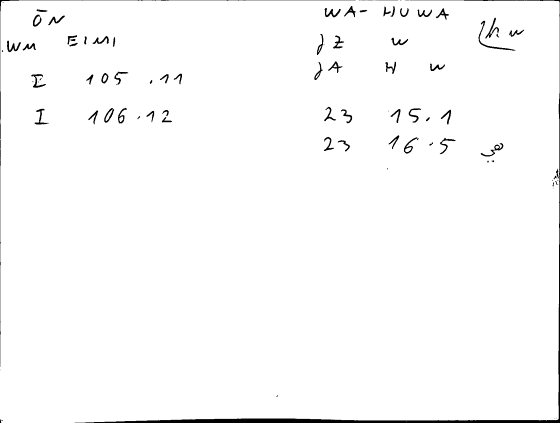 ŌN
WM EIMI
I 105.11
I 106.12
WA- HUWA
JZ W
JA H W
23 15.1
23 16.5
هي